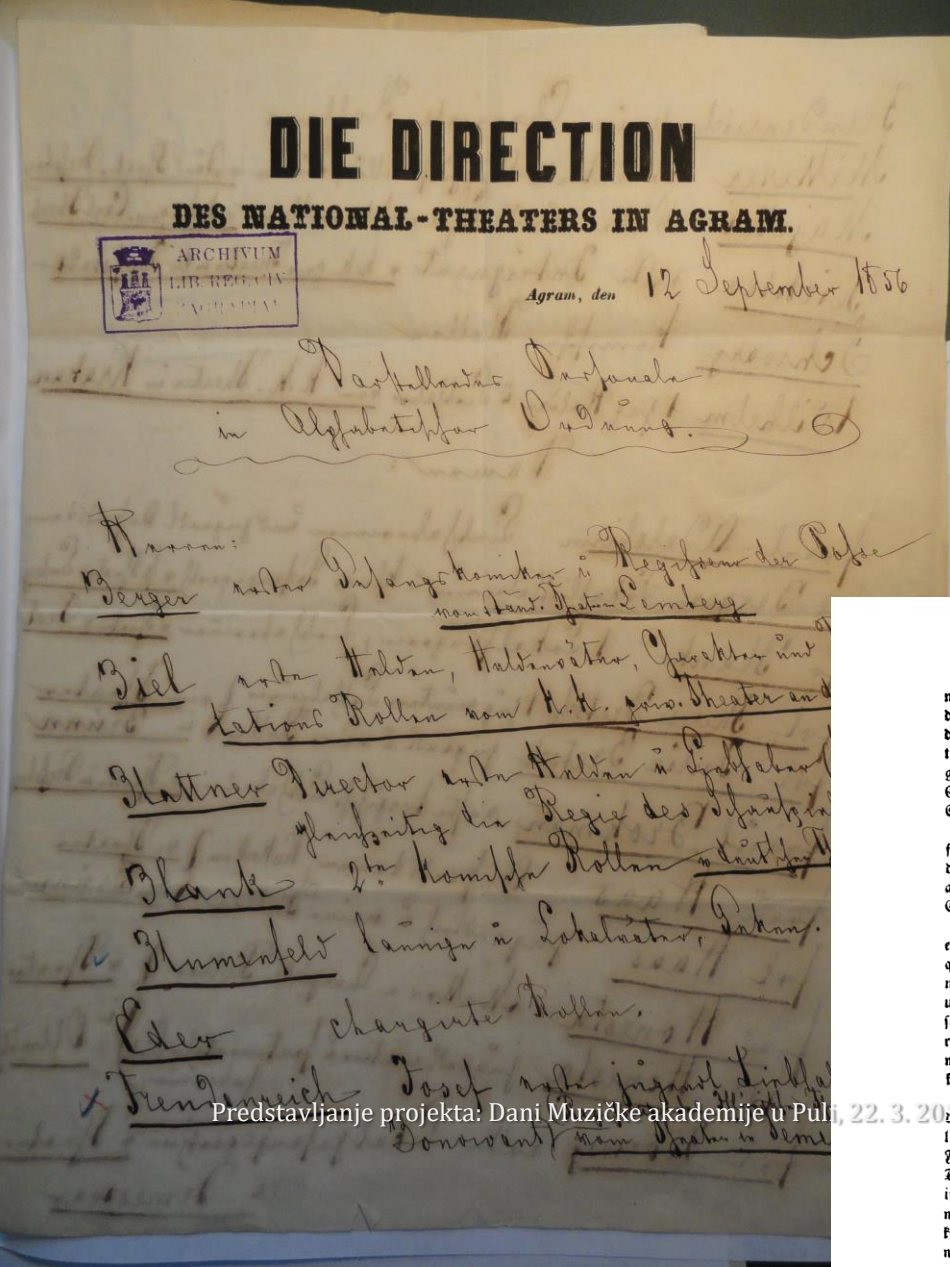 DIE DIRECTION
DES NATIONAL-THEATERS IN AGRAM.
ARCHIVUM
LIB. REG. CIV.
ZAGRABIAE
Agram, den 12 September 1856
Darstellendes Personale
in Alphabetischer Ordnung.
Herren:
Berger erster Gesangskomiker u Regisseur der Posse
vom ständ. Theater in Lemberg
Biel erste Helden, Heldenväter, Charakter und
tations Rollen vom k.k. priv. Theater an d
Blattner Director erste Helden u Liebhaber
gleichzeitig die Regie des Schauspiels
Blank 2te komische Rollen v deutschen
Blumenfeld launige u Lokalväter, Geken.
Eder chargirte Rollen.
Freudenreich Josef erste jugendl Liebha
Bonvivants vom Theater in Teme
Predstavljanje projekta: Dani Muzičke akademije u Puli, 22. 3. 20